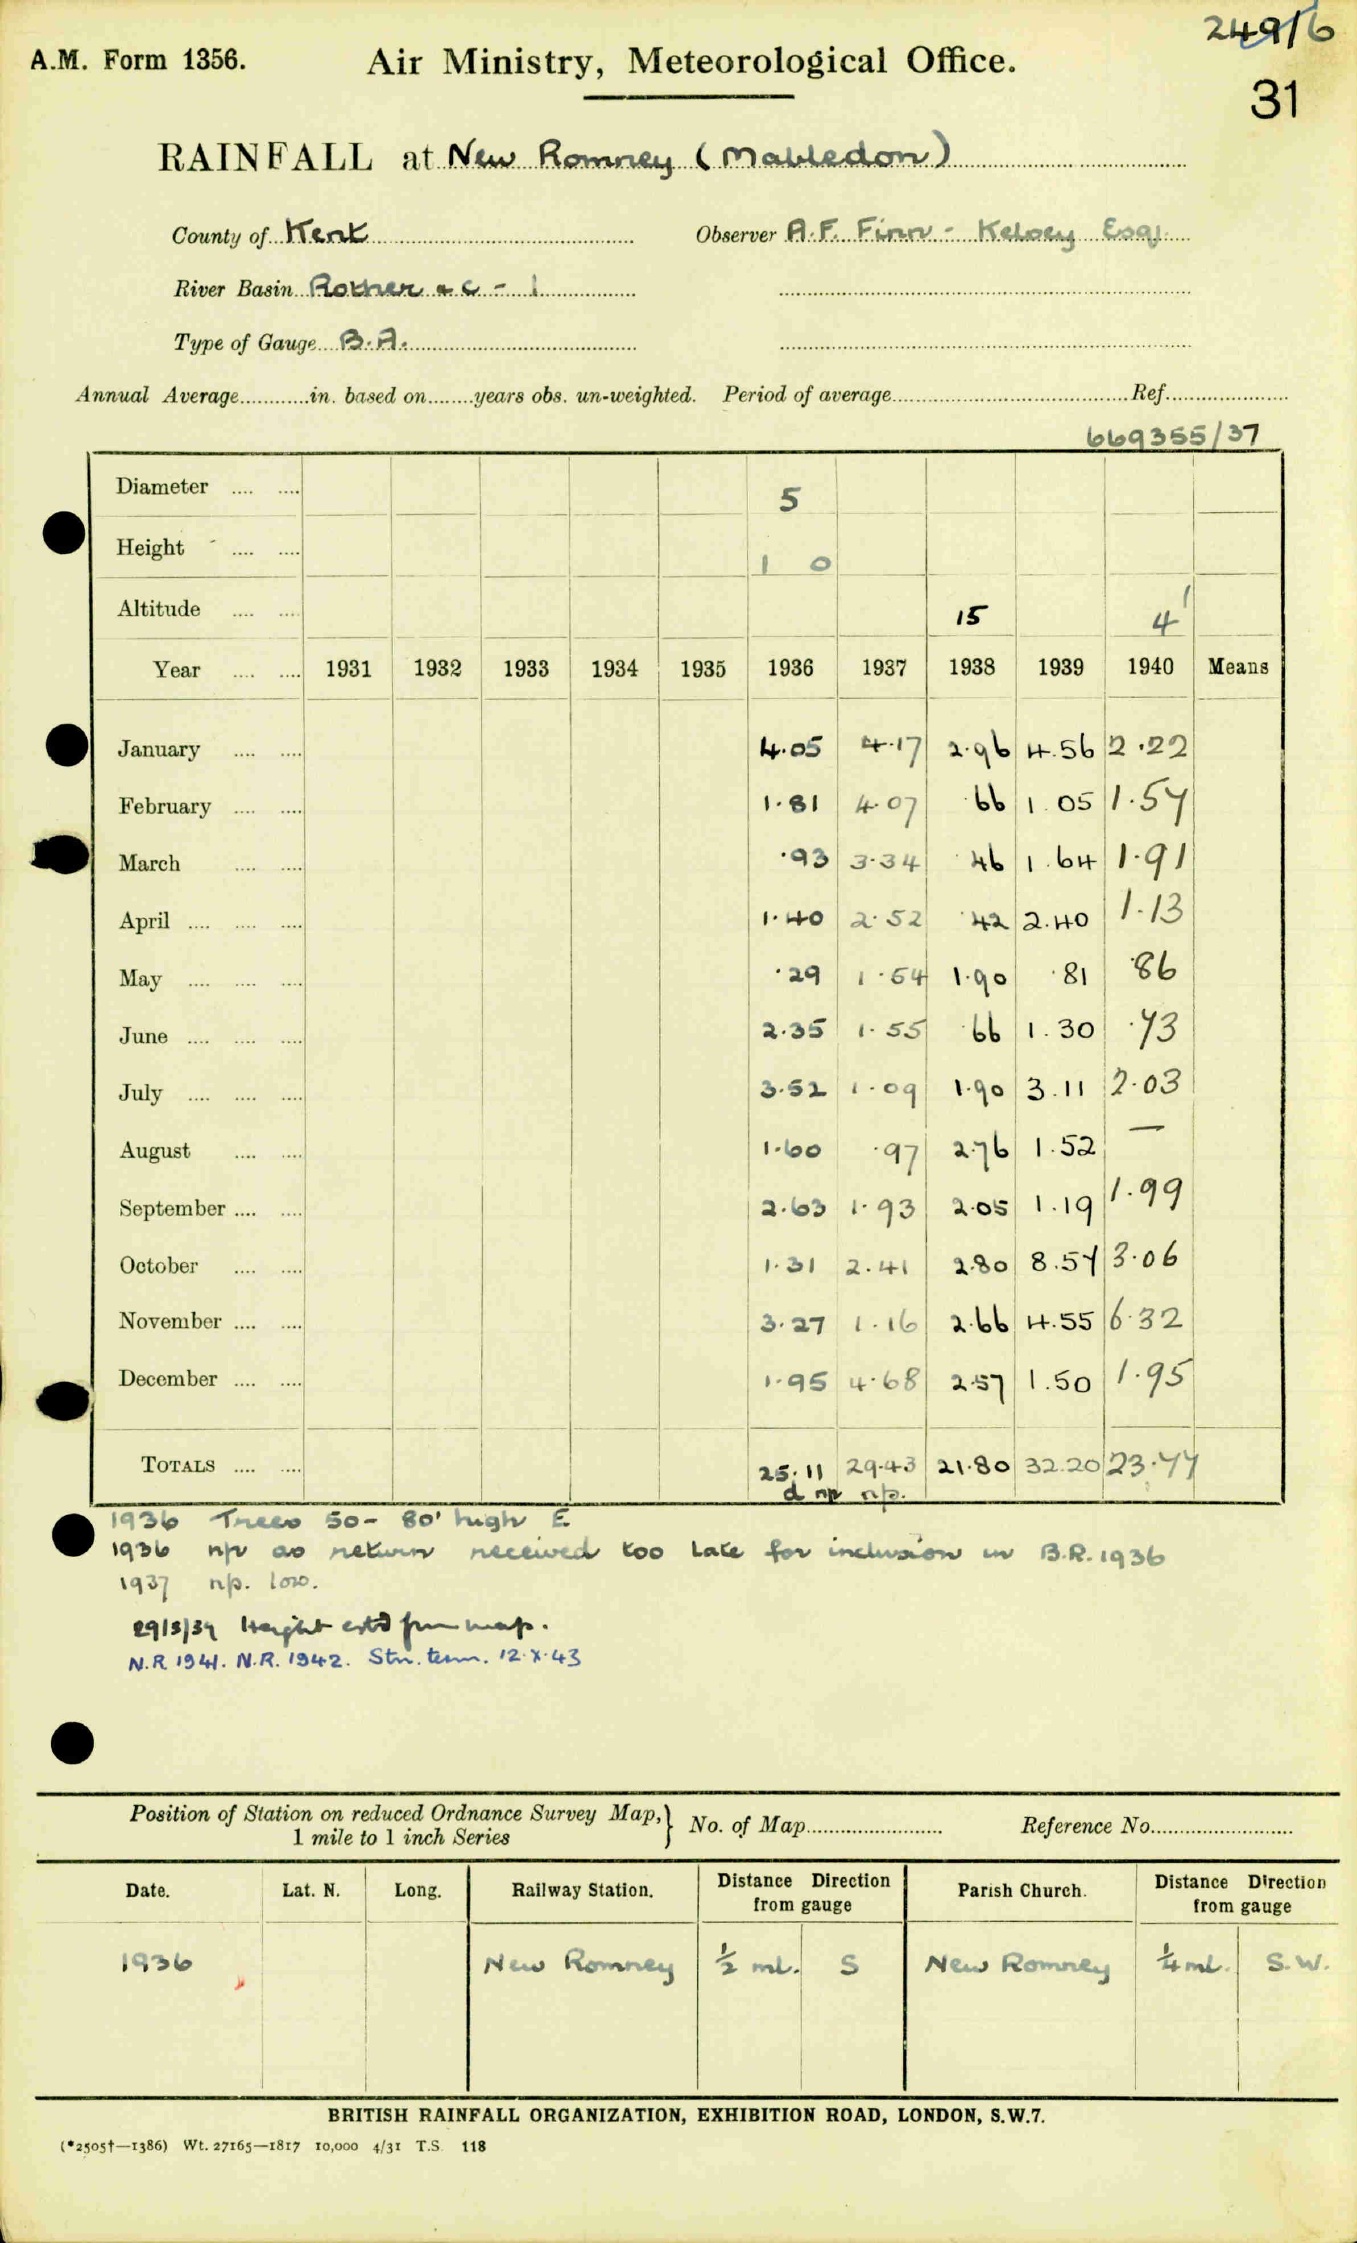 249/6
A.M. Form 1356. Air Ministry, Meteorological Office.
31
RAINFALL at New Romney (Mabledon)
County of Kent Observer A.F. Finn - Kelsey Esq.
River Basin Rother &c - 1
Type of Gauge B.A.
Annual Average............in. based on........years obs. un-weighted. Period of average............Ref............
669355/37
Diameter .... .... 5
Height .... .... 1 0
Altitude .... .... 15 4'
Year .... .... 1931 1932 1933 1934 1935 1936 1937 1938 1939 1940 Means
January .... .... 4.05 4.17 2.96 4.56 2.22
February .... .... 1.81 4.07 .66 1.05 1.57
March .... .... .93 3.34 .46 1.64 1.91
April .... .... .... 1.40 2.52 .42 2.40 1.13
May .... .... .... .29 1.54 1.90 .81 .86
June .... .... .... 2.35 1.55 .66 1.30 .73
July .... .... .... 3.52 1.09 1.90 3.11 2.03
August .... .... 1.60 .97 2.76 1.52 —
September .... .... 2.63 1.93 2.05 1.19 1.99
October .... .... 1.31 2.41 2.80 8.57 3.06
November .... .... 3.27 1.16 2.66 4.55 6.32
December .... .... 1.95 4.68 2.57 1.50 1.95
TOTALS .... .... 25.11 29.43 21.80 32.20 23.77
d np np.
1936 Trees 50- 80' high E
1936 np as return received too late for inclusion in B.R. 1936
1937 np. low.
29/3/39 Height estd from map.
N.R 1941. N.R. 1942. Stn. term. 12.X.43
Position of Station on reduced Ordnance Survey Map, 1 mile to 1 inch Series } No. of Map............ Reference No............
Date. Lat. N. Long. Railway Station. Distance Direction from gauge Parish Church. Distance Direction from gauge
1936 New Romney ½ ml. S New Romney ¼ ml. S.W.
BRITISH RAINFALL ORGANIZATION, EXHIBITION ROAD, LONDON, S.W.7.
(*2505†—1386) Wt. 27165—1817 10,000 4/31 T.S. 118